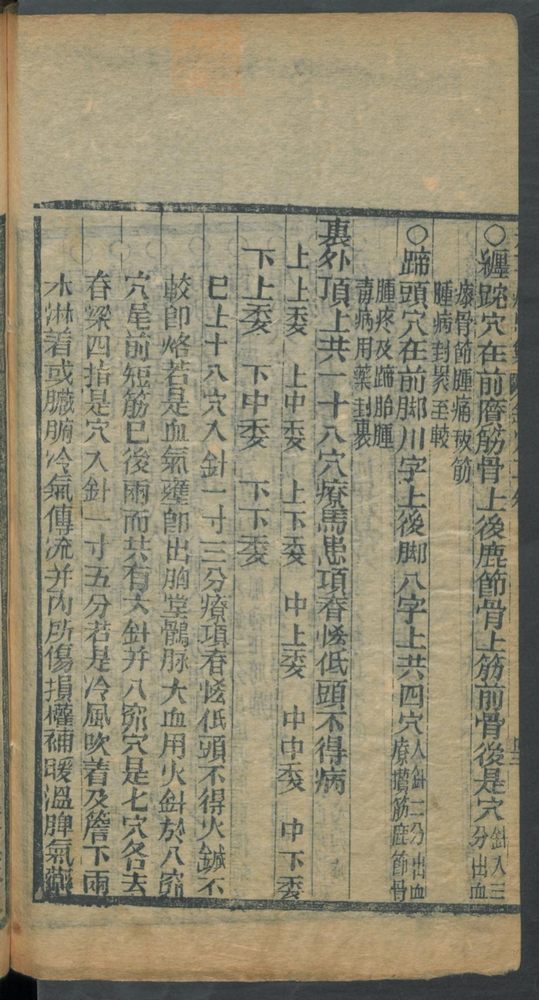 ○纒踠穴在前膺筋骨上後鹿節骨上筋前骨後是穴針入三分出血
療骨節腫痛破筋腫病封裹至較
○蹄頭穴在前脚川字上後脚八字上共四穴入針二分出血療攢筋鹿節骨
腫疼及蹄胎腫毒病用藥封裹
裏外項上共一十八穴療馬患項脊恡低頭不得病
上上委 上中委 上下委 中上委 中中委 中下委
下上委 下中委 下下委
巳上十八穴入針一寸三分療項脊恡低頭不得火鍼不
較即烙若是血氣壅即出胸堂鶻脉大血用火針於八窌
穴尾前短筋巳後兩而共有六針并八窌穴是七穴各去
脊梁四指是穴入針一寸五分若是冷風吹着及簷下雨
水淋着或臟腑冷氣傳流并内所傷損權補暖溫脾氣藥